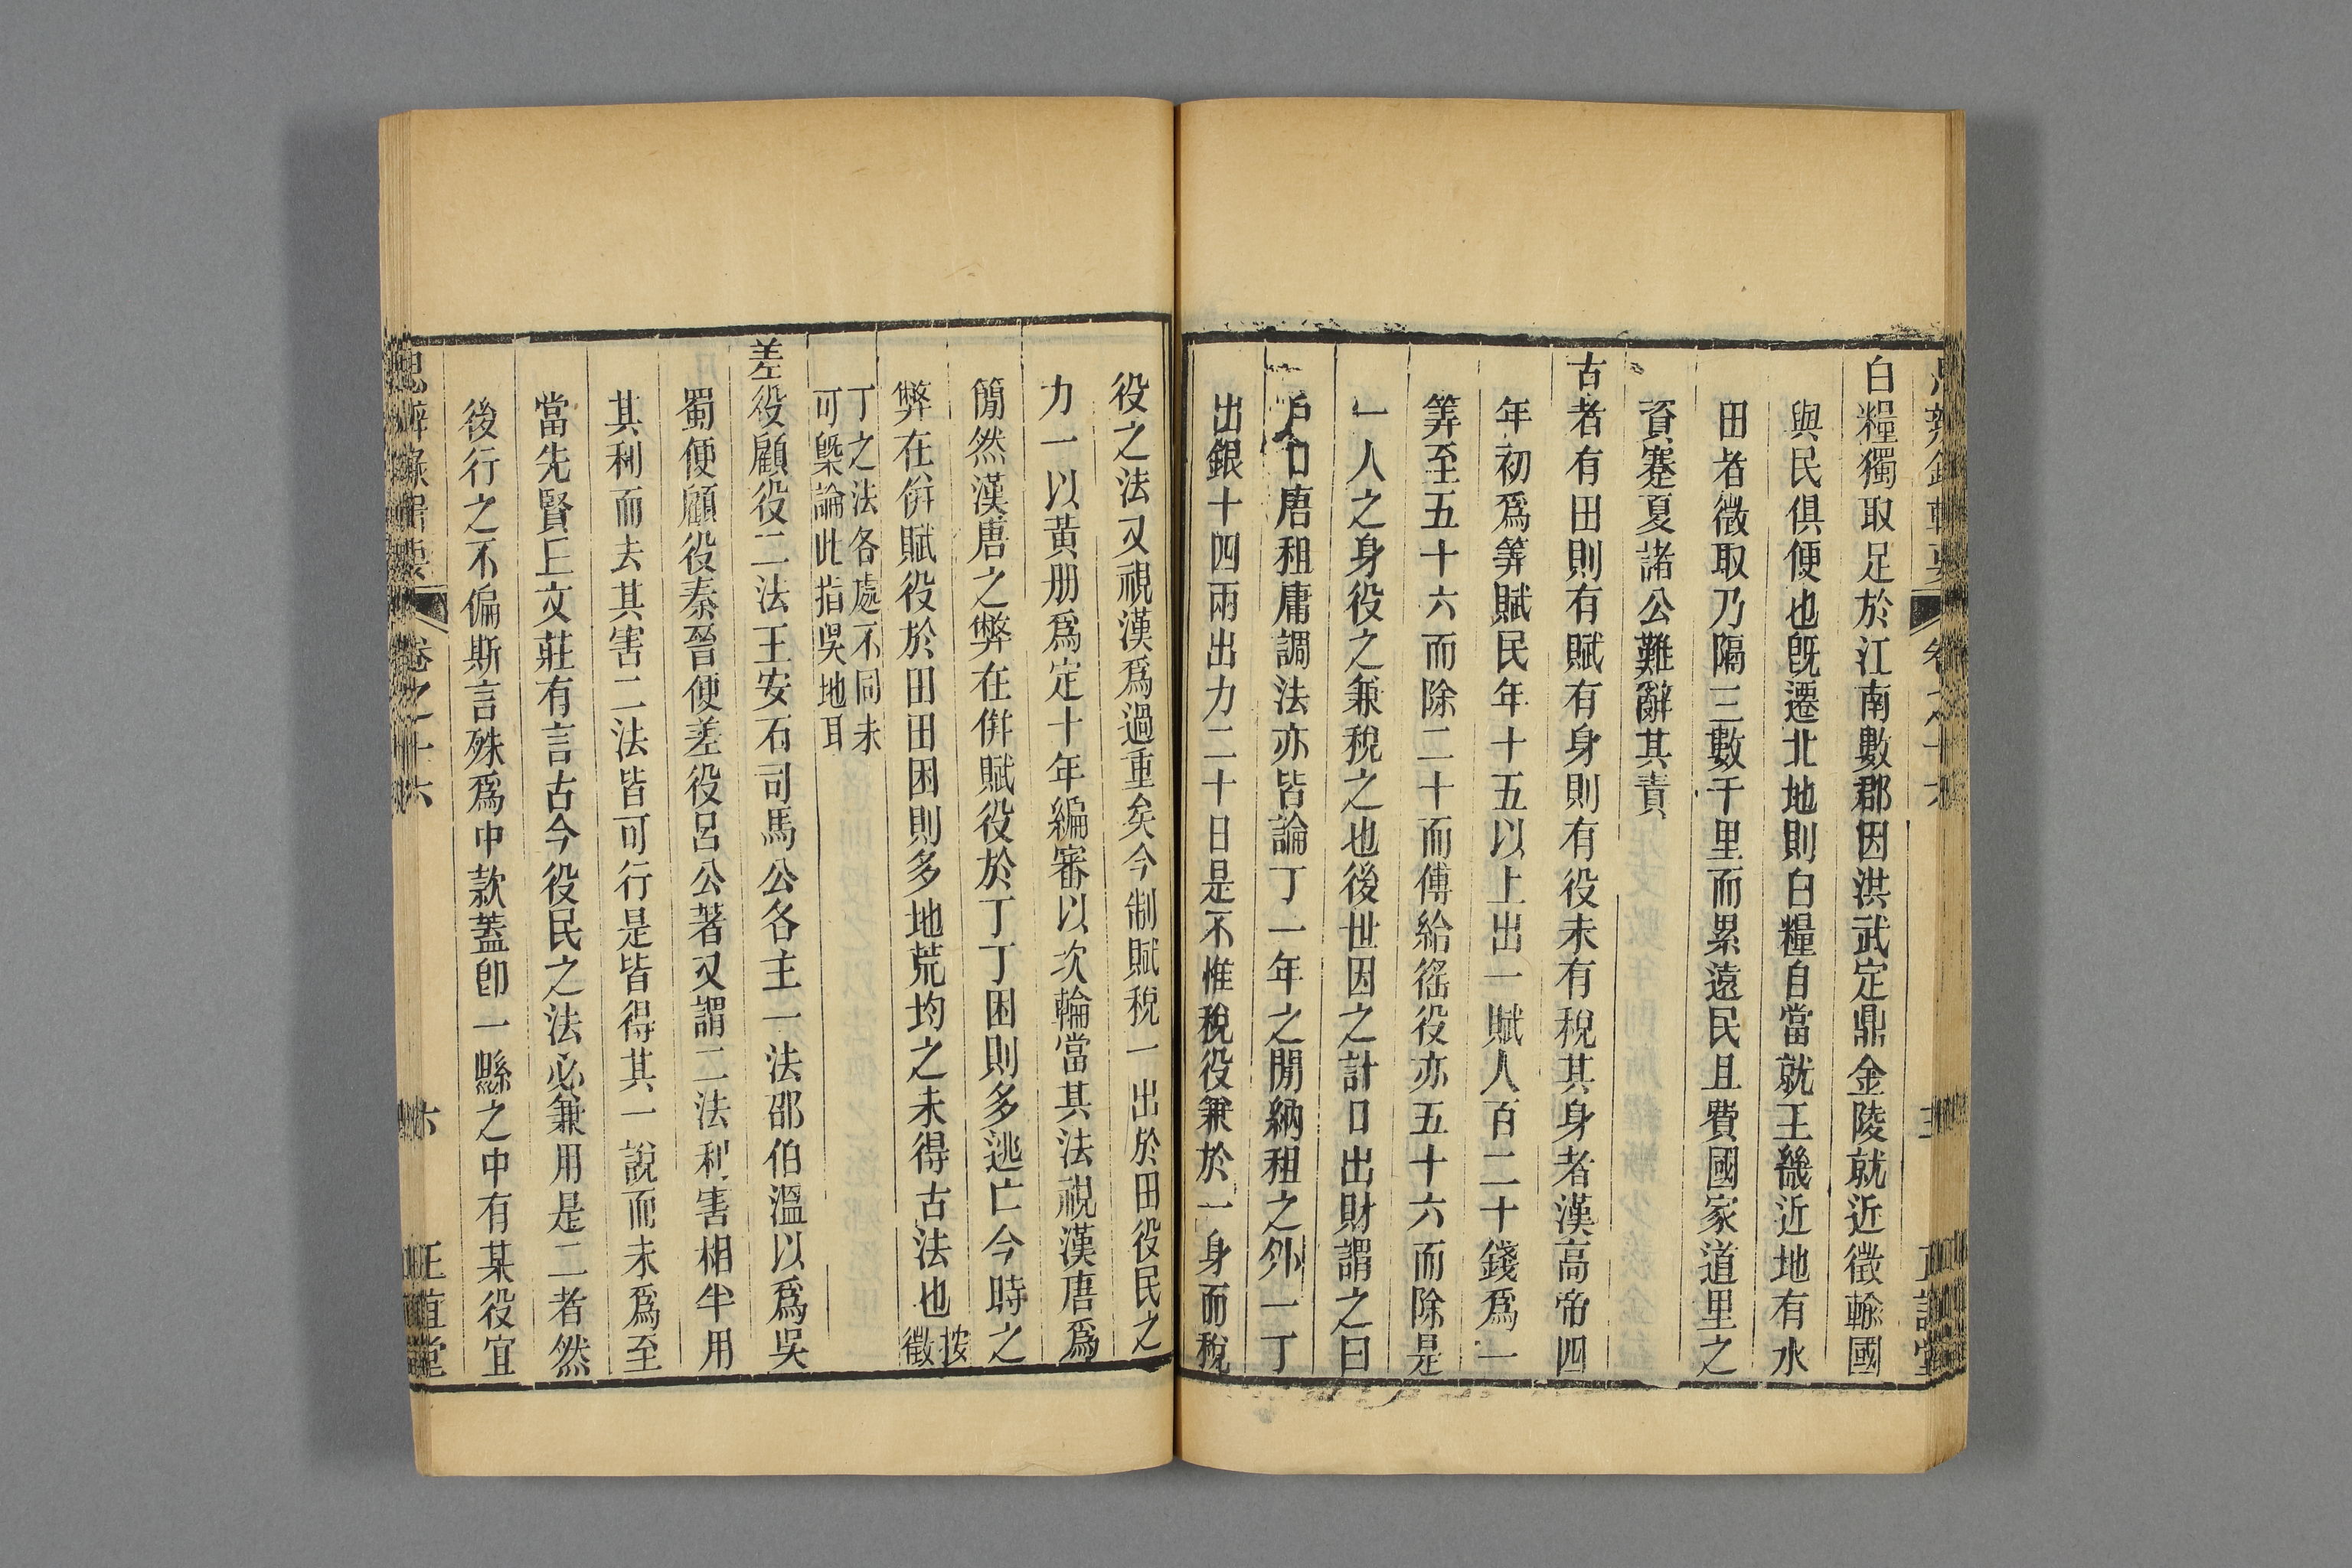 白糧獨取足於江南數郡因洪武定鼎金陵就近徵輸國
與民俱便也旣遷北地則白糧自當就王畿近地有水
田者徵取乃隔三數千里而累遠民且費國家道里之
資蹇夏諸公難辭其責
古者有田則有賦有身則有役未有稅其身者漢高帝四
年初爲筭賦民年十五以上出一賦人百二十錢爲一
筭至五十六而除二十而傅給徭役亦五十六而除是
一人之身役之兼稅之也後世因之計口出財謂之曰
戶口唐租庸調法亦皆論丁一年之閒納租之外一丁
出銀十四兩出力二十日是不惟稅役兼於一身而稅
役之法又視漢爲過重矣今制賦稅一出於田役民之
力一以黃册爲定十年編審以次輪當其法視漢唐爲
簡然漢唐之弊在倂賦役於丁丁困則多逃亡今時之
弊在倂賦役於田田困則多地荒均之未得古法也按徵
丁之法各處不同未
可槩論此指吳地耳
差役顧役二法王安石司馬公各主一法邵伯溫以爲吳
蜀便顧役秦晉便差役呂公著又謂二法利害相半用
其利而去其害二法皆可行是皆得其一說而未爲至
當先賢丘文莊有言古今役民之法必兼用是二者然
後行之不偏斯言殊爲中款蓋卽一縣之中有某役宜
思辨錄輯要 卷之十六 六 正誼堂